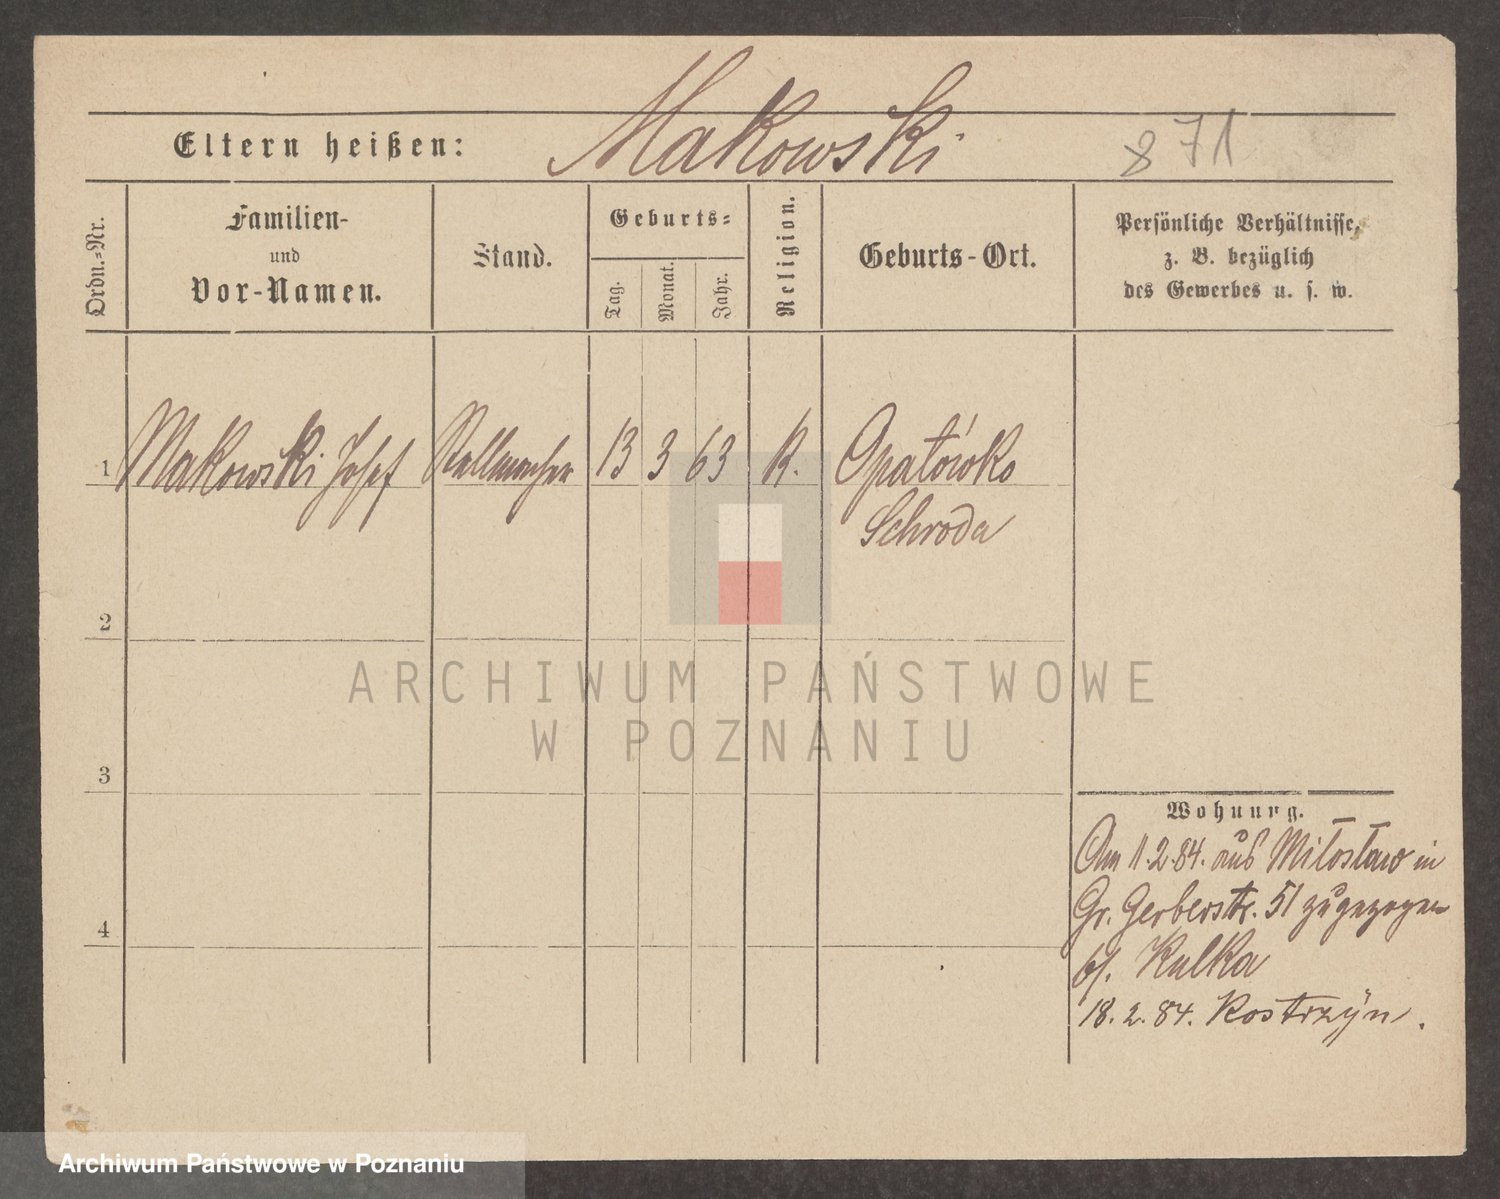 Eltern heißen: Makowski 871
Ordn.-Nr.
Familien-
und
Vor-Namen.
Stand.
Geburts-
Tag.
Monat.
Jahr.
Religion.
Geburts-Ort.
Persönliche Verhältnisse,
z. B. bezüglich
des Gewerbes u. s. w.
1 Makowski Josef Stellmacher 13 3 63 K. Opatówko
Schroda
2
3
4
Wohnung.
Am 11.2.84. aus Miłosław in
Gr. Gerberstr. 51 zugezogen
b/. Kulka
18.2.84. Kostrzyn.
ARCHIWUM PAŃSTWOWE
W POZNANIU
Archiwum Państwowe w Poznaniu